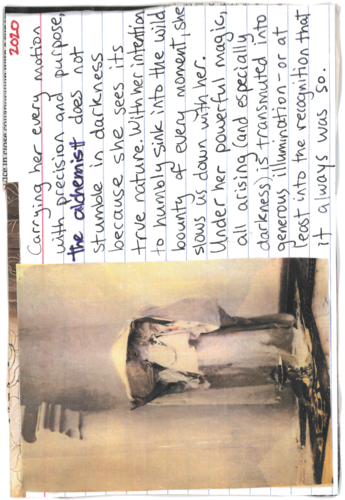 2020
Carrying her every motion
with precision and purpose,
the alchemist does not
stumble in darkness
because she sees its
true nature. With her intention
to humbly sink into the wild
bounty of every moment, she
slows us down with her.
Under her powerful magic,
all arising (and especially
darkness) is transmuted into
generous illumination - or at
least into the recognition that
it always was so.